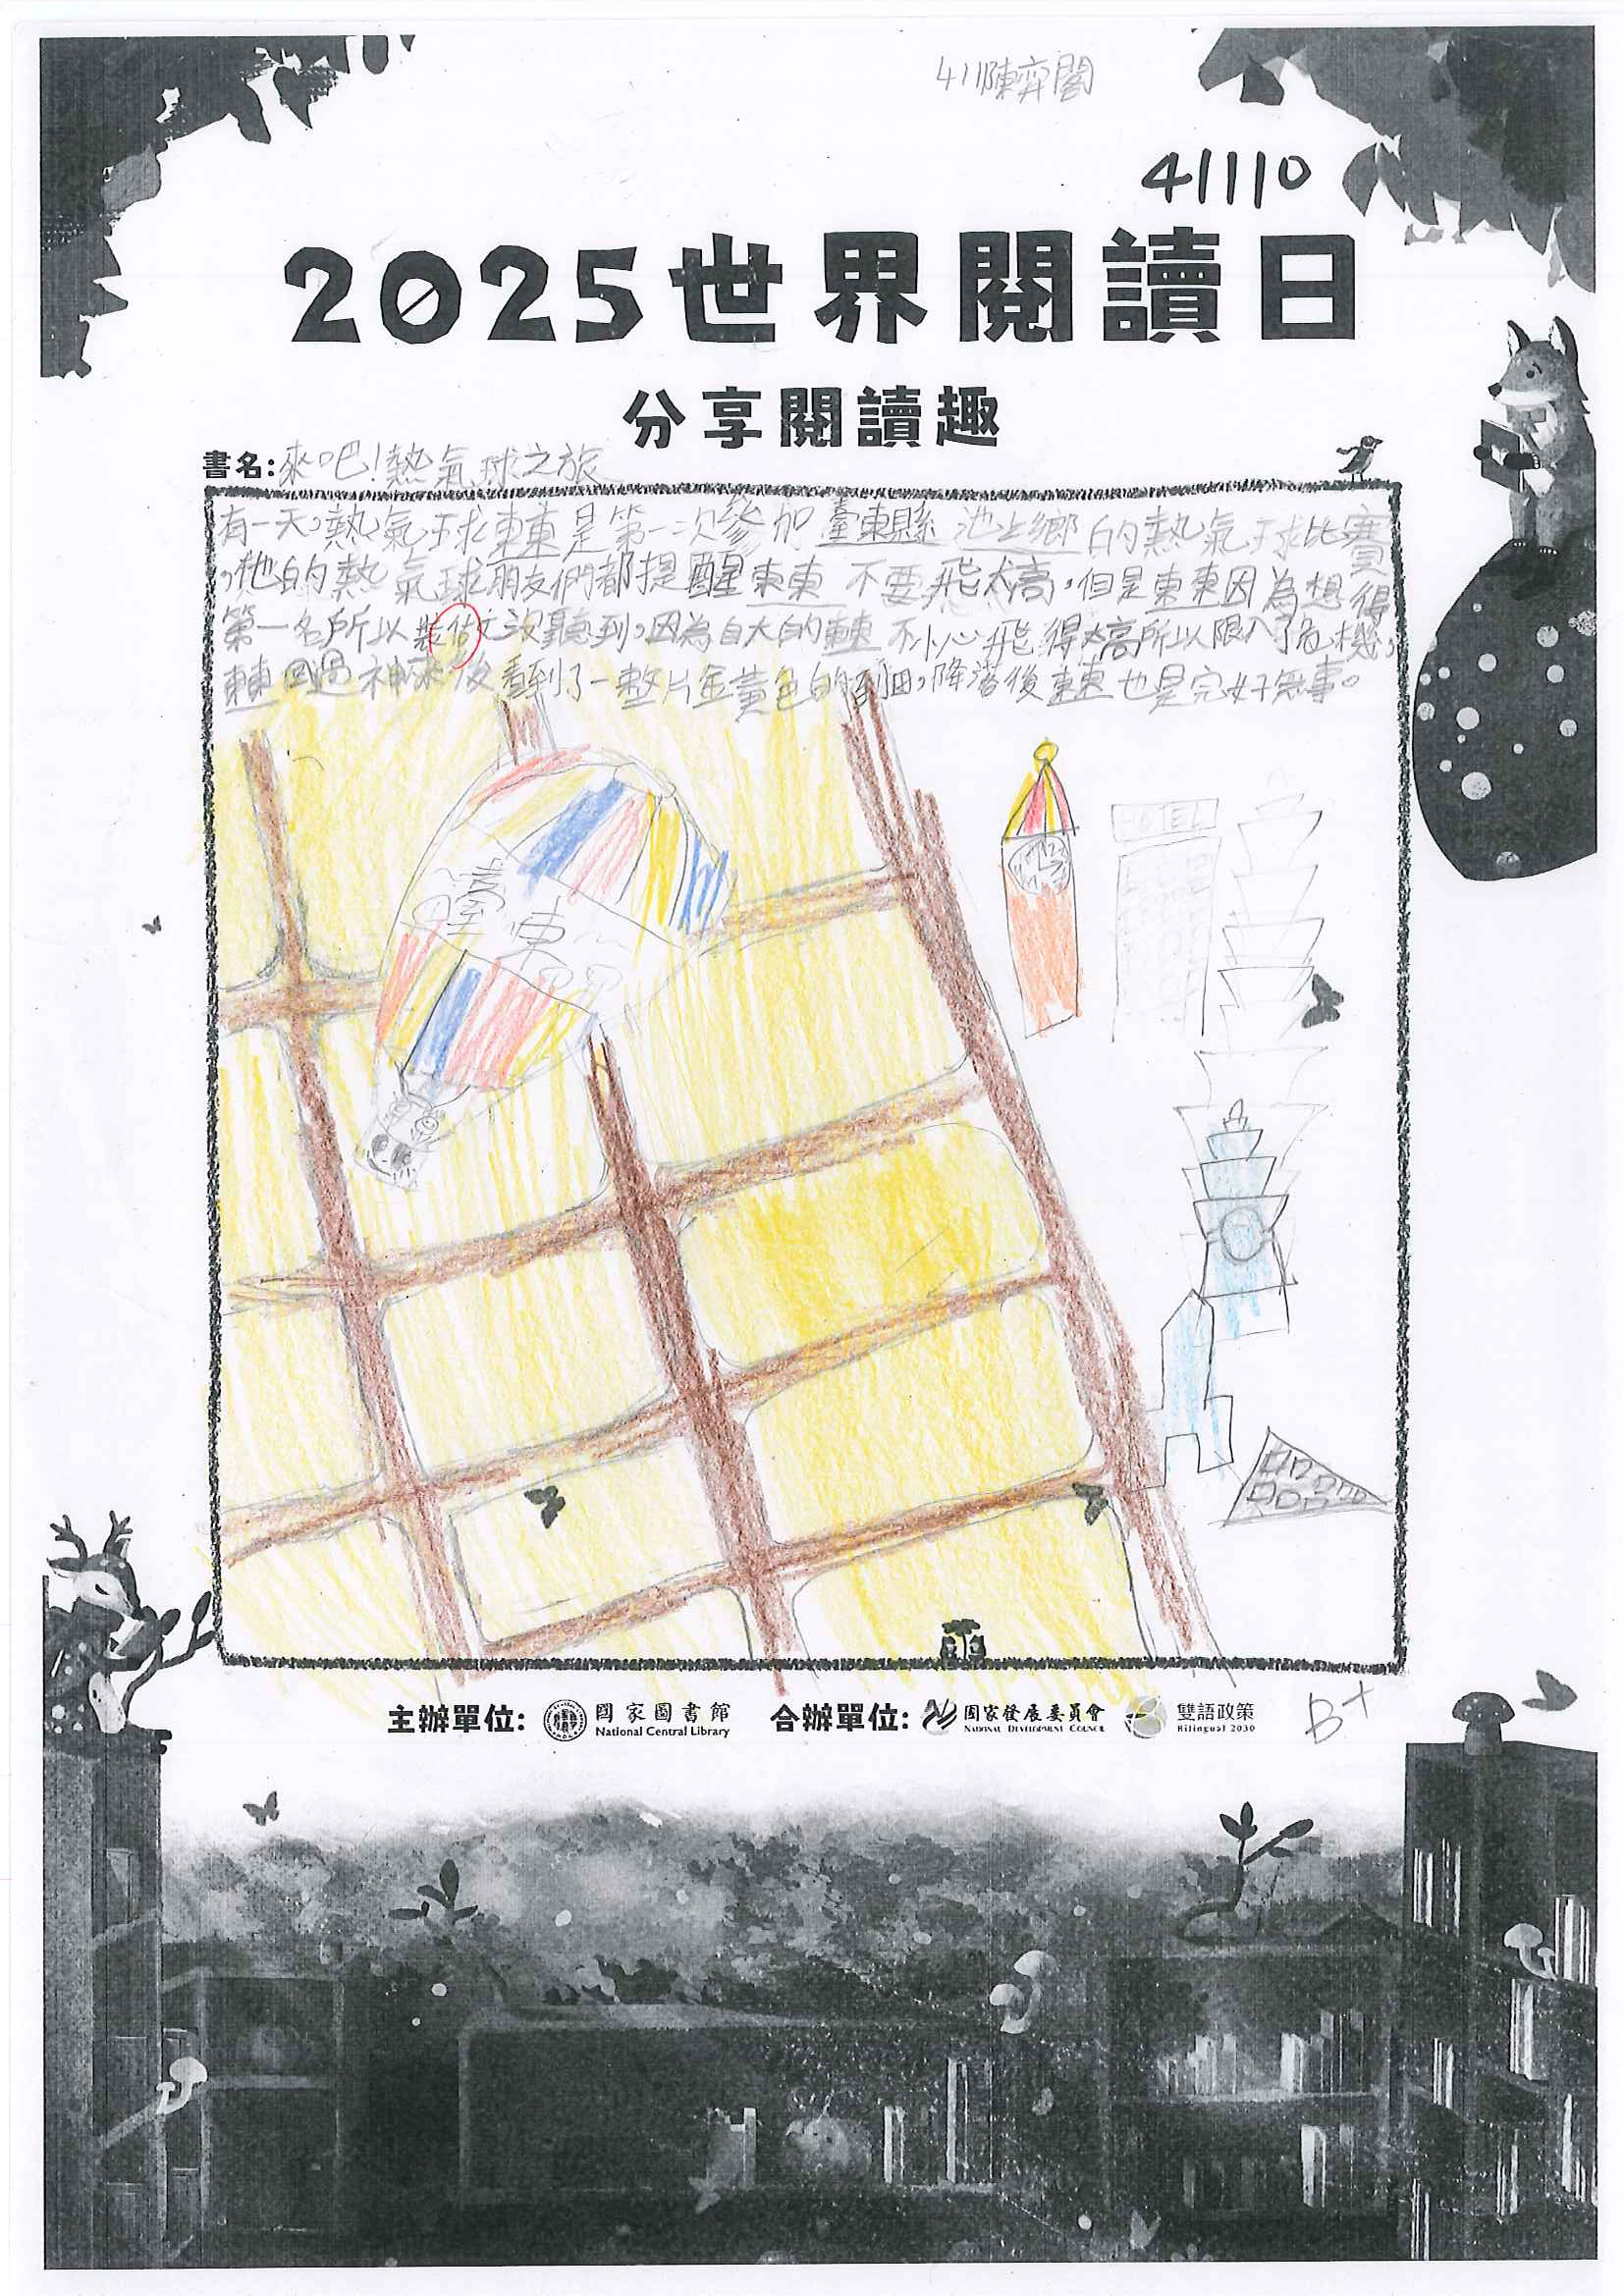 411陳弈閣
41110
2025世界閱讀日
分享閱讀趣
書名:來吧!熱氣球之旅
有一天,熱氣球東東是第一次參加臺東縣池上鄉的熱氣球比賽
,他的熱氣球朋友們都提醒東東不要飛太高,但是東東因為想得
第一名所以裝佔沒聽到,因為自大的東東不小心飛得太高所以限入了危機,
東東回過神來後看到了一整片金黃色的稻田,降落後東東也是完好無事。
HOTEL
臺東
主辦單位: 國家圖書館 National Central Library 合辦單位: 國家發展委員會 NATIONAL DEVELOPMENT COUNCIL 雙語政策 Bilingual 2030
B+